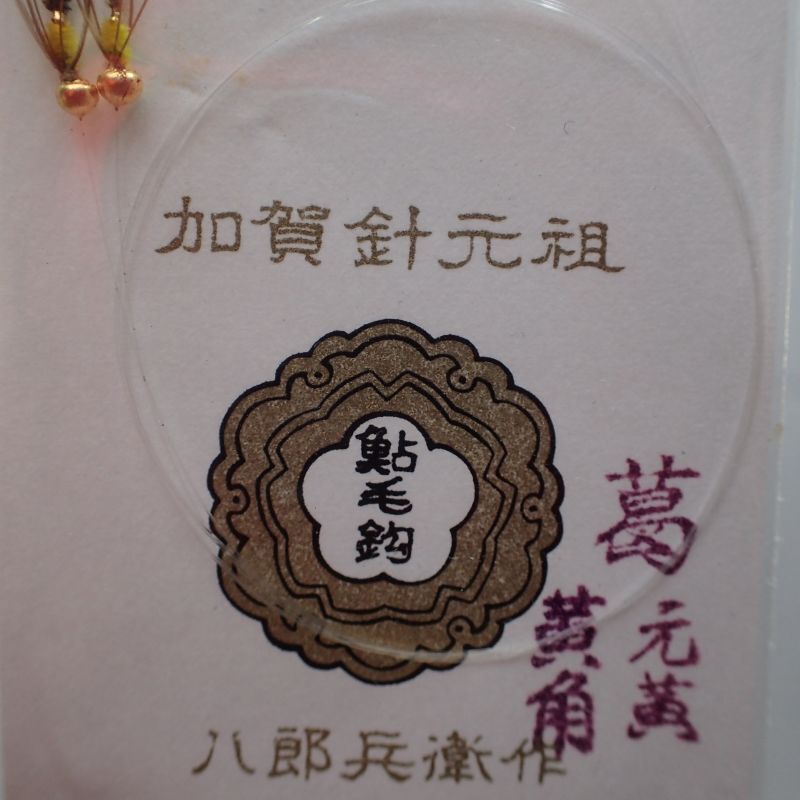 加賀針元祖
鮎毛鈎
葛
元黄
黄角
八郎兵衛作